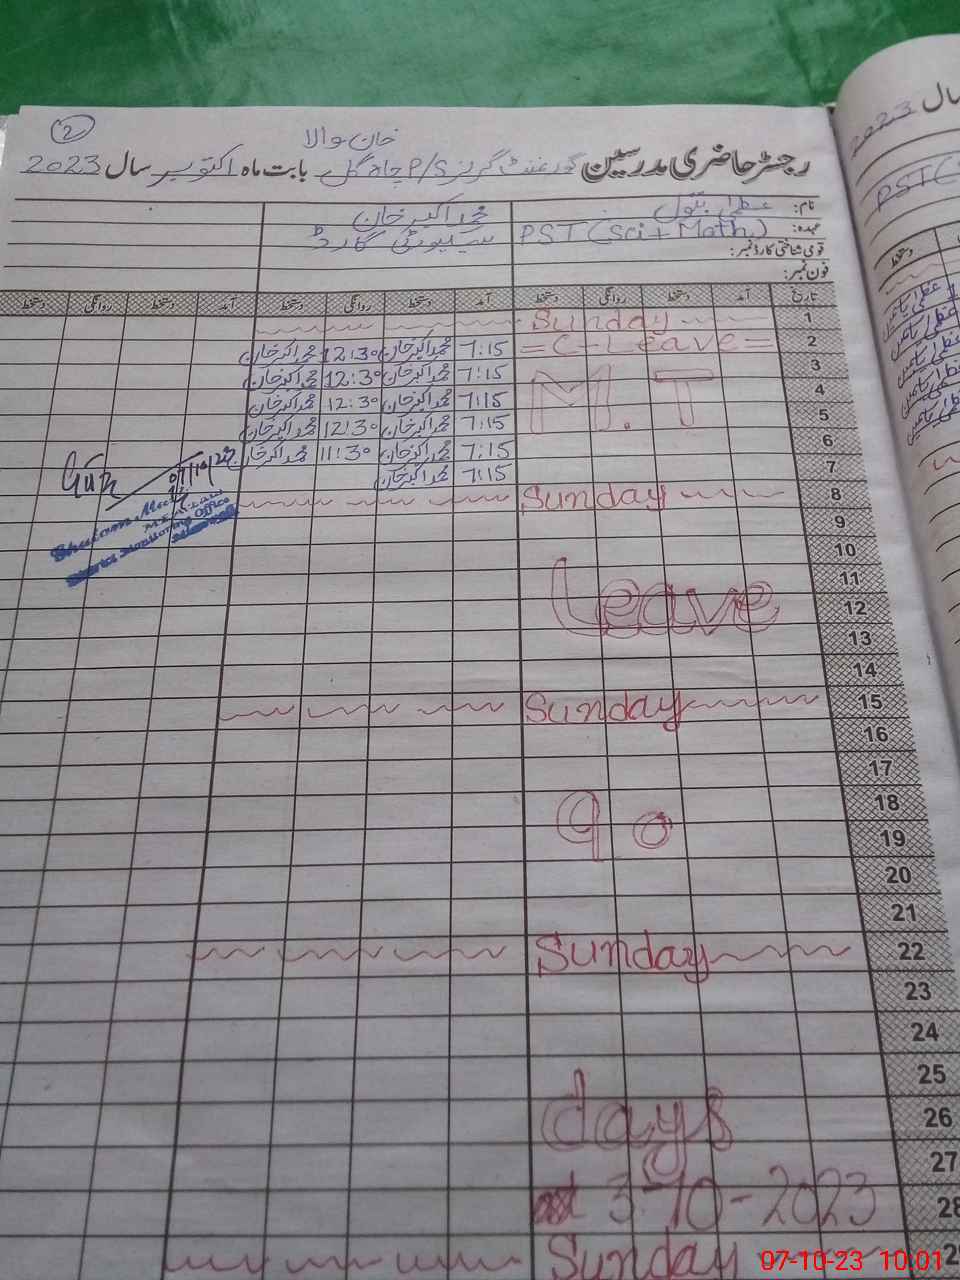 2
خان والا
رجسٹر حاضری مدرسین گورنمنٹ گرلز P/S چاہ گل بابت ماہ اکتوبر سال 2023
نام: عظمیٰ بتول محمد اکبر خان
عہدہ: PST (Sci + Math) سیکیورٹی گارڈ
قومی شناختی کارڈ نمبر:
فون نمبر:
تاریخ آمد دستخط روانگی دستخط آمد دستخط روانگی دستخط آمد دستخط روانگی دستخط
1 Sunday
2 = C - Leave = 7:15 محمد اکبر خان 12:30 محمد اکبر خان
3 7:15 محمد اکبر خان 12:30 محمد اکبر خان
4 M.T 7:15 محمد اکبر خان 12:30 محمد اکبر خان
5 7:15 محمد اکبر خان 12:30 محمد اکبر خان
6 7:15 محمد اکبر خان 11:30 محمد اکبر خان
7 7:15 محمد اکبر خان
07/10/23
8 Sunday
Monitoring Office
9
10
11
12 Leave
13
14
15 Sunday
16
17
18
19 90
20
21
22 Sunday
23
24
25
26 days
27
28 3-10-2023
29 Sunday
سال 2023
PST
دستخط
07-10-23 10:01